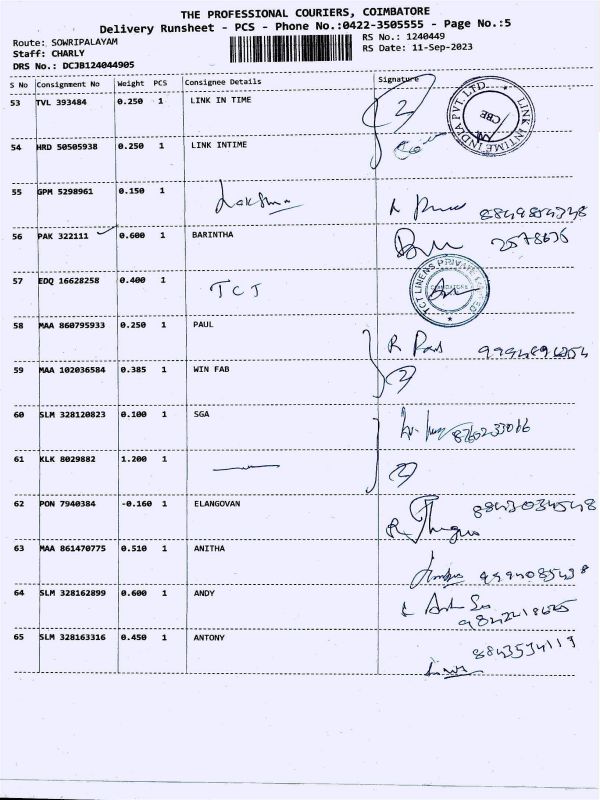 THE PROFESSIONAL COURIERS, COIMBATORE
Delivery Runsheet - PCS - Phone No.:0422-3505555 - Page No.:5
Route: SOWRIPALAYAM
RS No.: 1240449
Staff: CHARLY
RS Date: 11-Sep-2023
DRS No.: DCJB124044905
S No Consignment No Weight PCS Consignee Details Signature
53 TVL 393484 0.250 1 LINK IN TIME
LINK INTIME INDIA PVT. LTD. * CBE
54 HRD 50505938 0.250 1 LINK INTIME
55 GPM 5298961 0.150 1
56 PAK 322111 0.600 1 BARINTHA
57 EDQ 16628258 0.400 1 TCT
TCT LINENS PRIVATE LIMITED *
58 MAA 860795933 0.250 1 PAUL
59 MAA 102036584 0.385 1 WIN FAB
60 SLM 328120823 0.100 1 SGA
8760233066
61 KLK 8029882 1.200 1
62 PON 7940384 -0.160 1 ELANGOVAN
63 MAA 861470775 0.510 1 ANITHA
64 SLM 328162899 0.600 1 ANDY
65 SLM 328163316 0.450 1 ANTONY